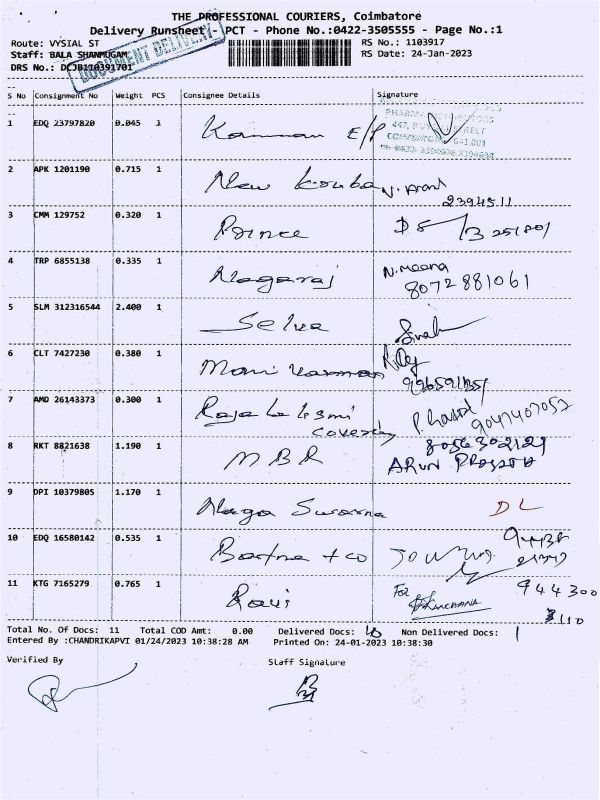 THE PROFESSIONAL COURIERS, Coimbatore
Delivery Runsheet - PCT - Phone No.:0422-3505555 - Page No.:1
Route: VYSIAL ST RS No.: 1103917
Staff: BALA SHANMUGAM RS Date: 24-Jan-2023
DRS No.: DCJB110391701
DOCUMENT DELIVERY
S No Consignment No Weight PCS Consignee Details Signature
1 EDQ 23797820 0.045 1 Kannan E/P
447,
COIMBATORE-641.001
2 APK 1201190 0.715 1 New
2394511
3 CMM 129752 0.320 1 Prince
4 TRP 6855138 0.335 1 Nagaraj N.meena
8072881061
5 SLM 312316544 2.400 1 Selva
6 CLT 7427230 0.380 1 Mani
7 AMD 26143373 0.300 1 Raja Lakshmi
covering 9047407052
8 RKT 8821638 1.190 1 MBR 8056302129
ARUN PRASATH
9 DPI 10379805 1.170 1 Naga Swarna DL
10 EDQ 16580142 0.535 1 + co
11 KTG 7165279 0.765 1 Ravi For 944300
3110
Total No. Of Docs: 11 Total COD Amt: 0.00 Delivered Docs: 10 Non Delivered Docs: 1
Entered By :CHANDRIKAPVI 01/24/2023 10:38:28 AM Printed On: 24-01-2023 10:38:30
Verified By Staff Signature